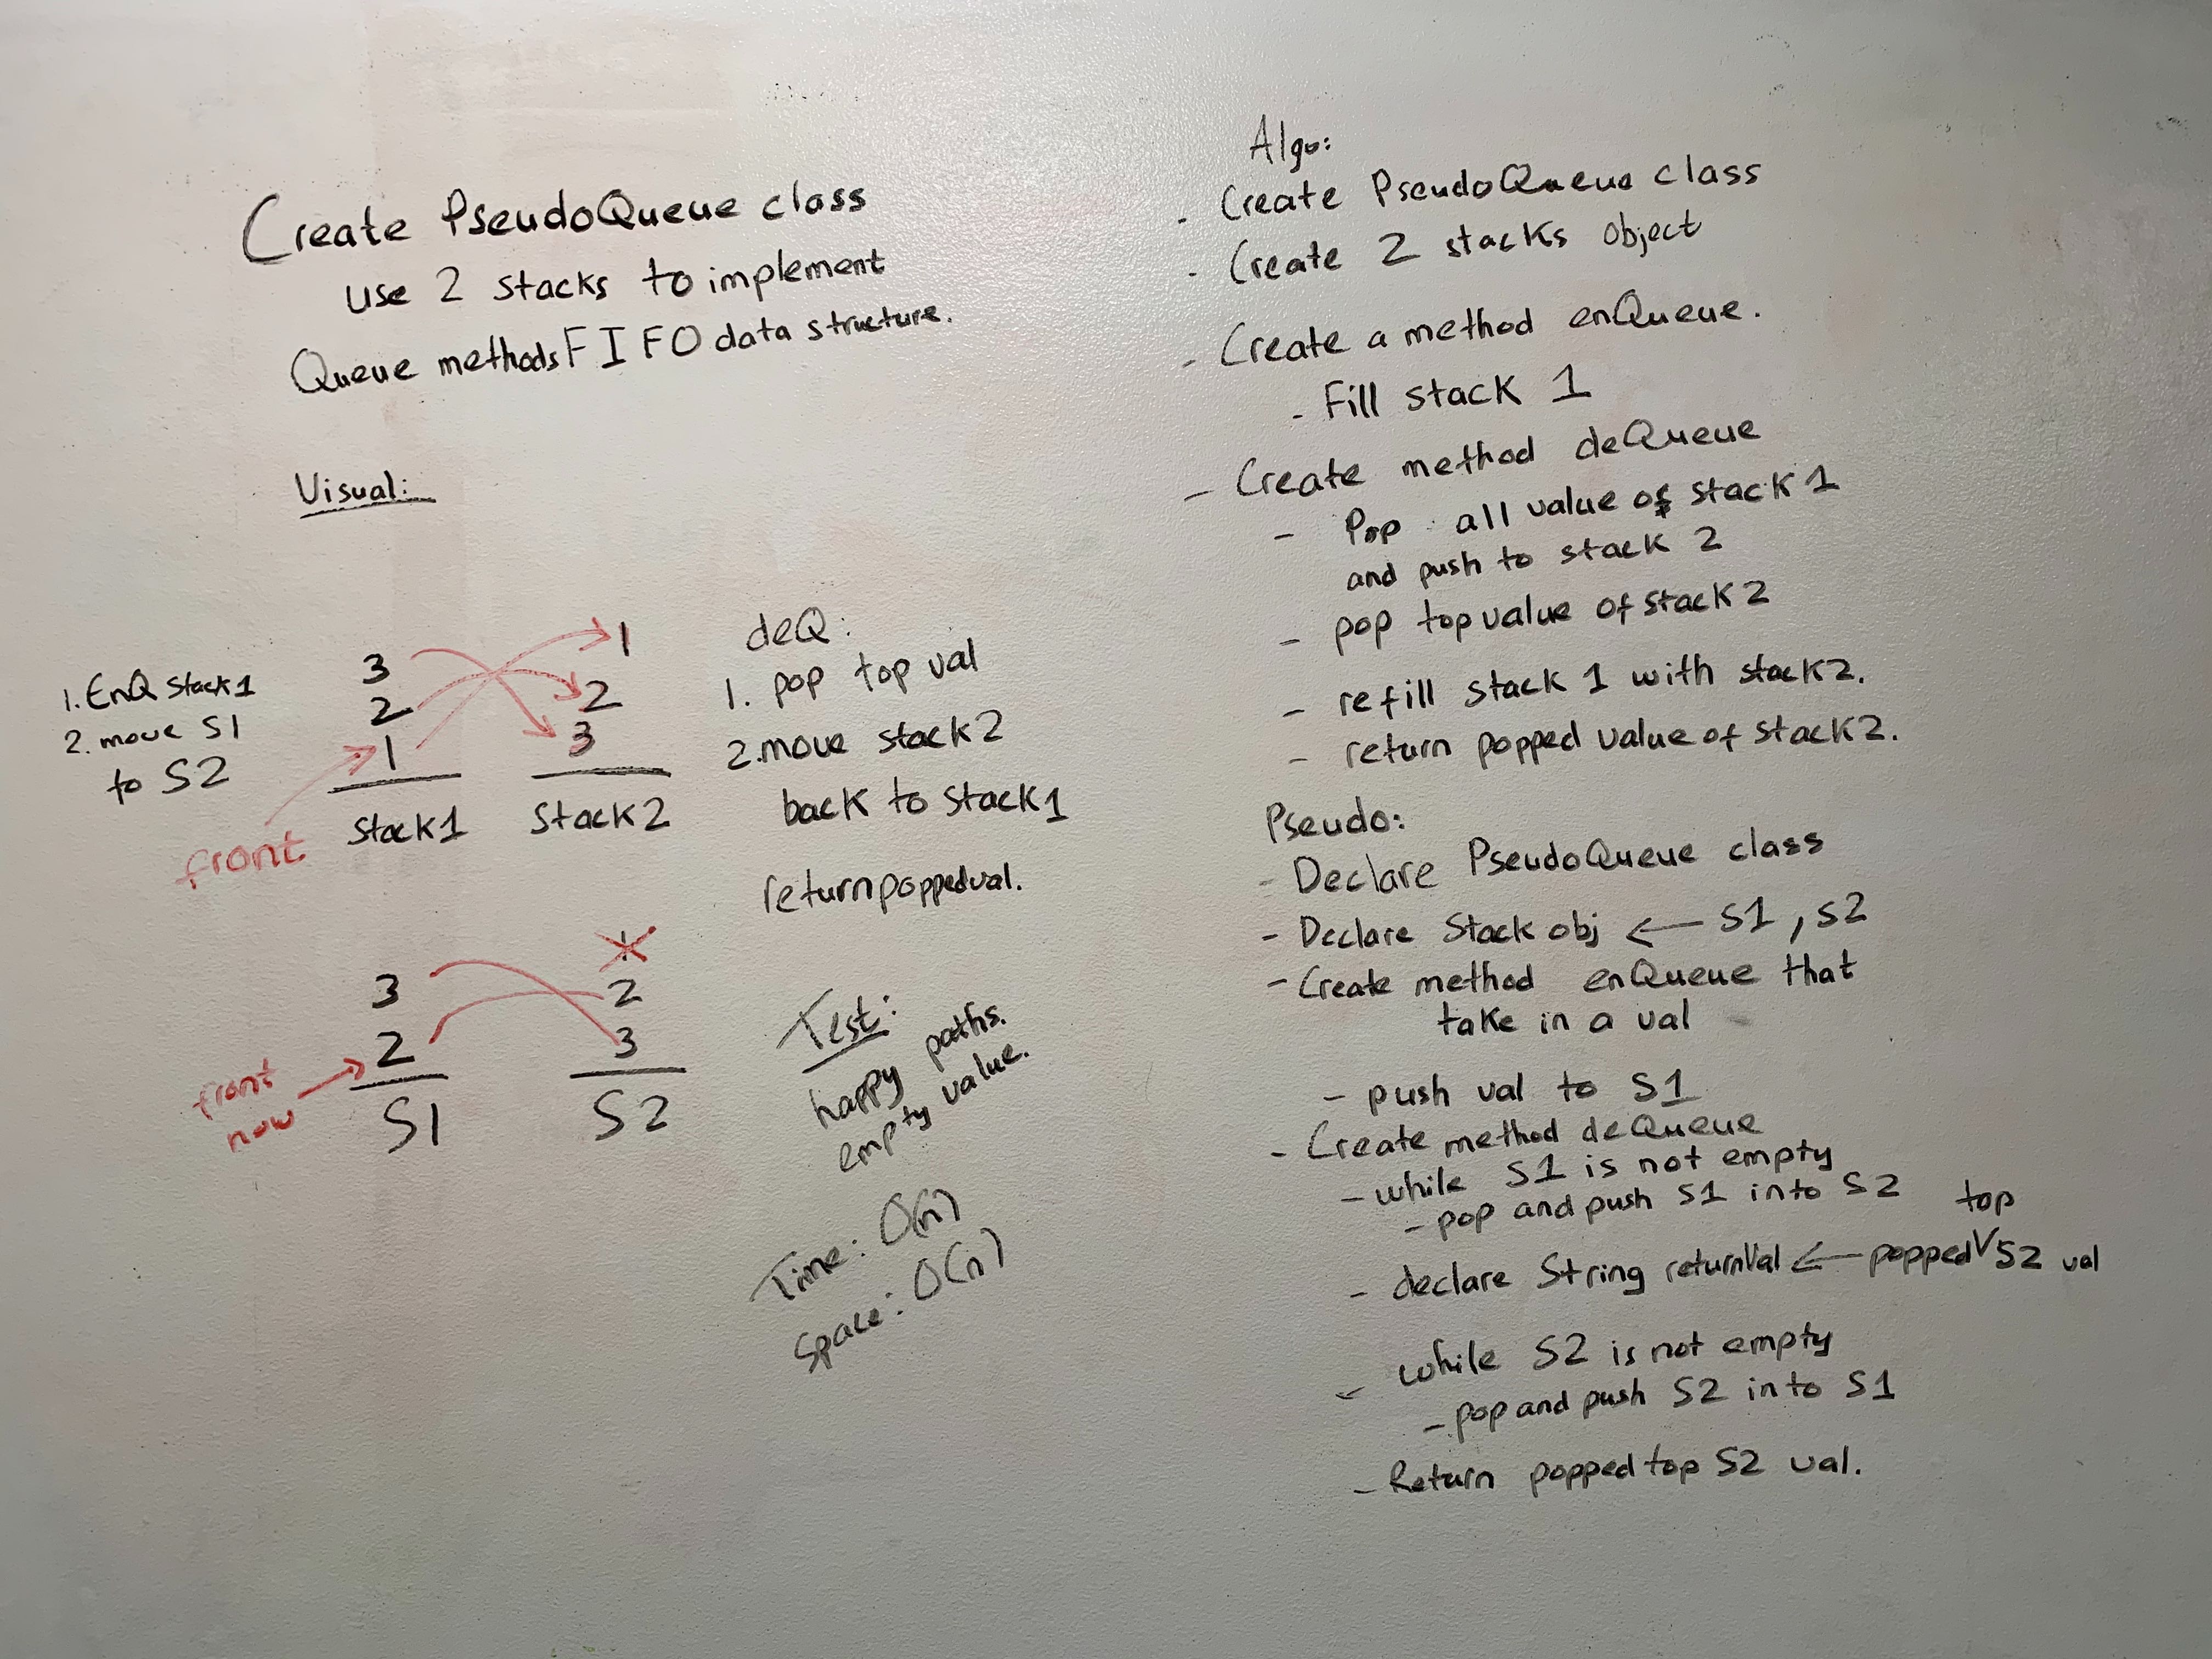 Create PseudoQueue class
use 2 stacks to implement
Queue methods FIFO data structure.
Visual:
1. EnQ Stack1
2. move S1
to S2
3
2
1
stack1
front
1
2
3
Stack2
deQ:
1. pop top val
2. move stack2
back to stack1
return popped val.
3
2
S1
front
now
1
2
3
S2
Test:
happy paths.
empty value.
Time: O(n)
Space: O(n)
Algo:
- Create PseudoQueue class
- Create 2 stacks object
- Create a method enQueue.
- Fill stack 1
- Create method deQueue
- Pop all value of stack 1
and push to stack 2
- pop top value of stack 2
- refill stack 1 with stack2.
- return popped value of stack2.
Pseudo:
- Declare PseudoQueue class
- Declare Stack obj ← S1, S2
- Create method enQueue that
take in a val
- push val to S1
- Create method deQueue
- while S1 is not empty
- pop and push S1 into S2
top
- declare String returnVal ← popped V S2 val
- while S2 is not empty
- pop and push S2 into S1
- Return popped top S2 val.